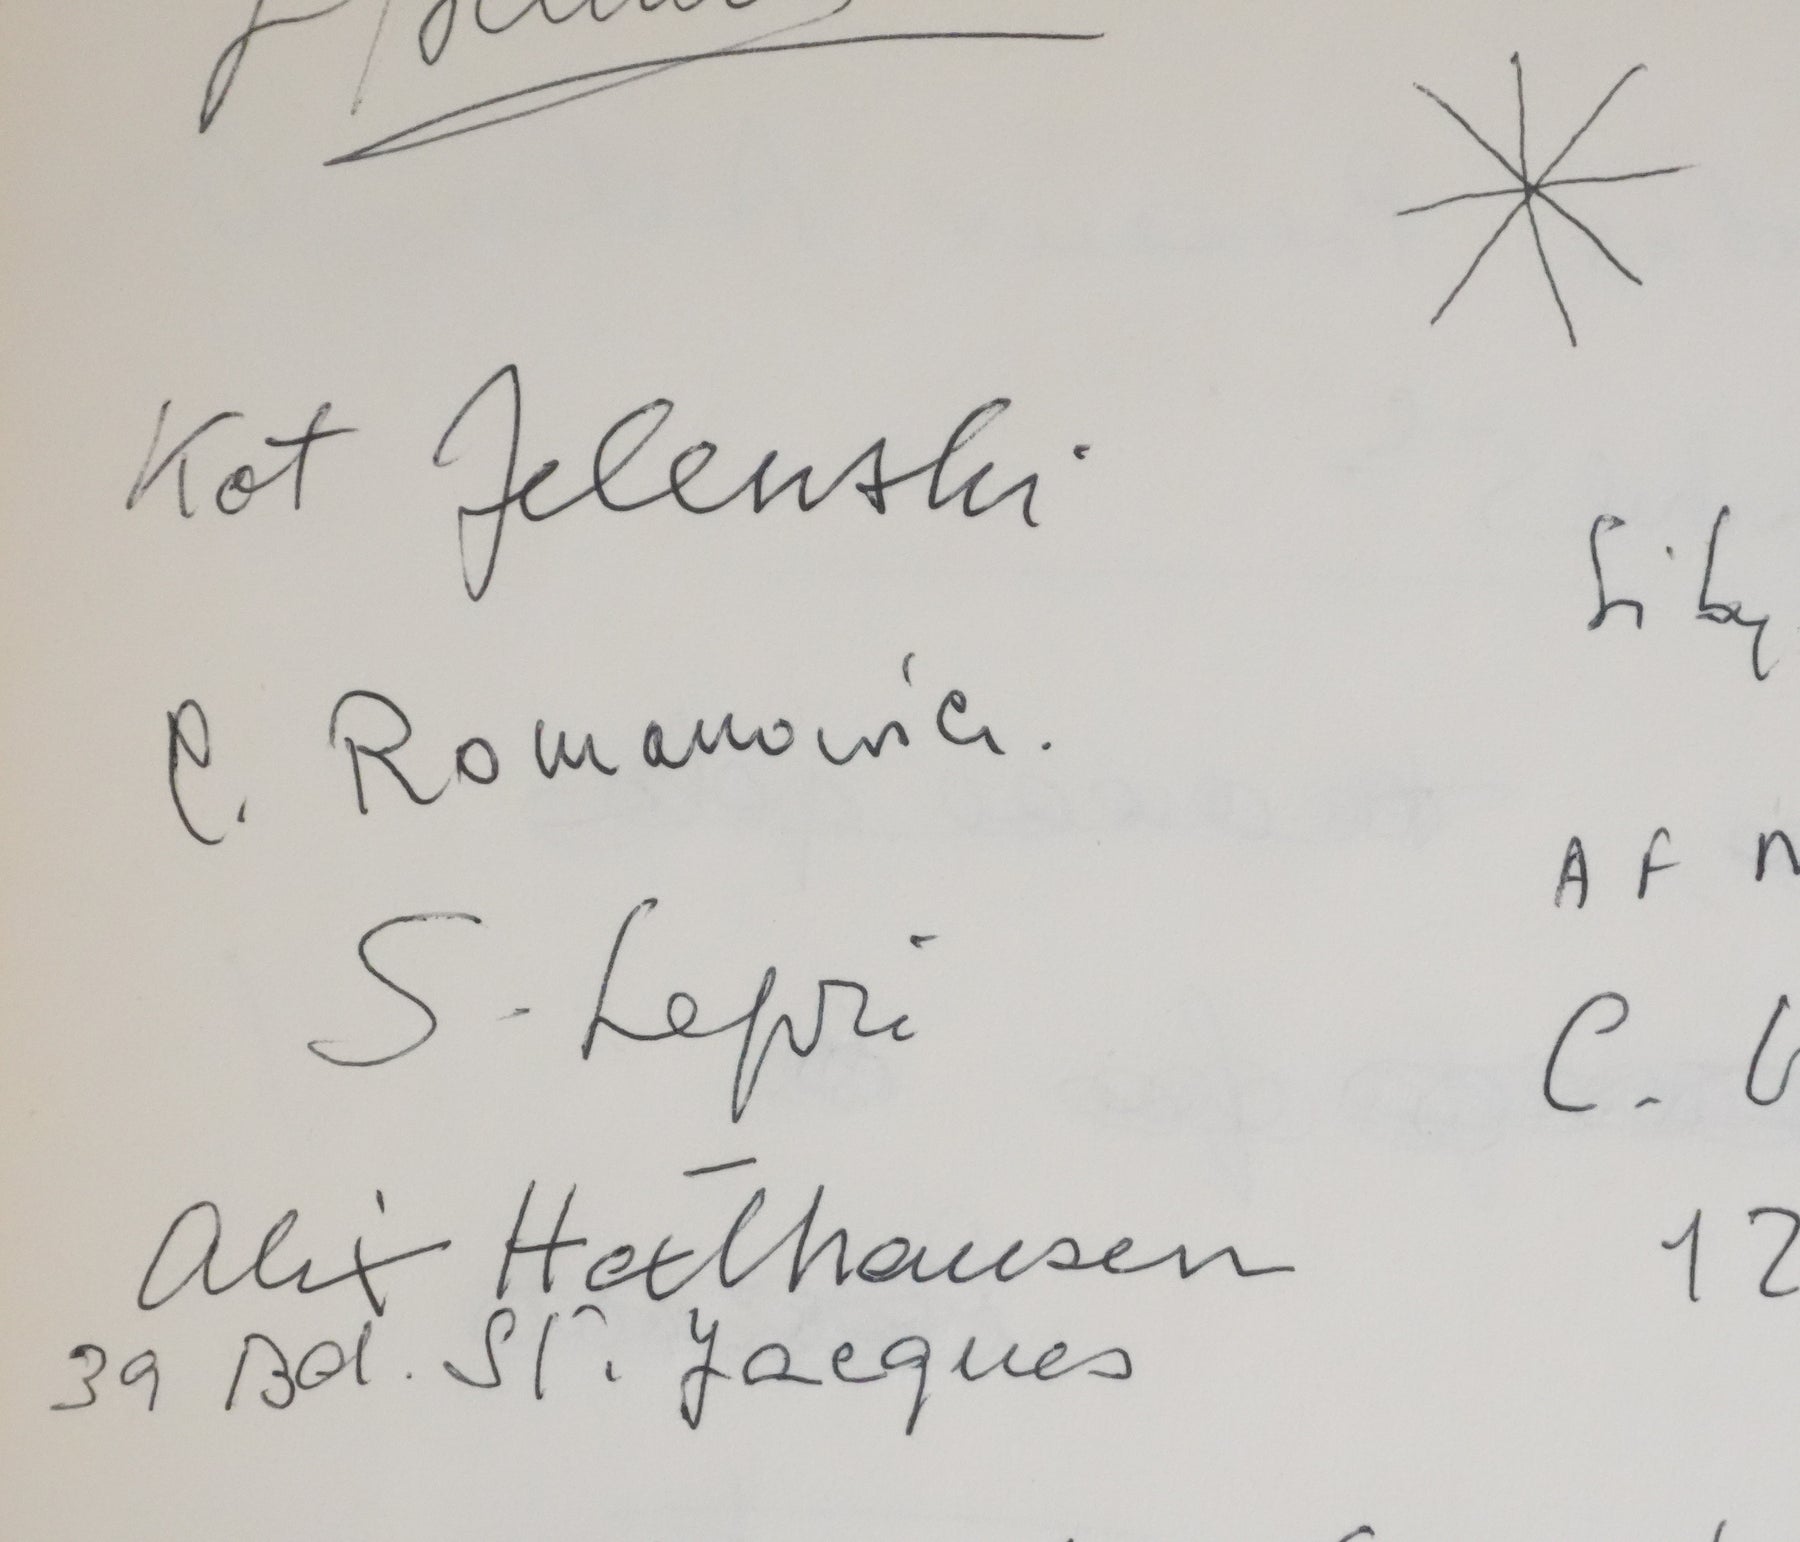 Kot Jelenski
C. Romanowicz.
S. Lepri
Alix Holthausen
39 Bd. St. Jacques
A F
C.
12